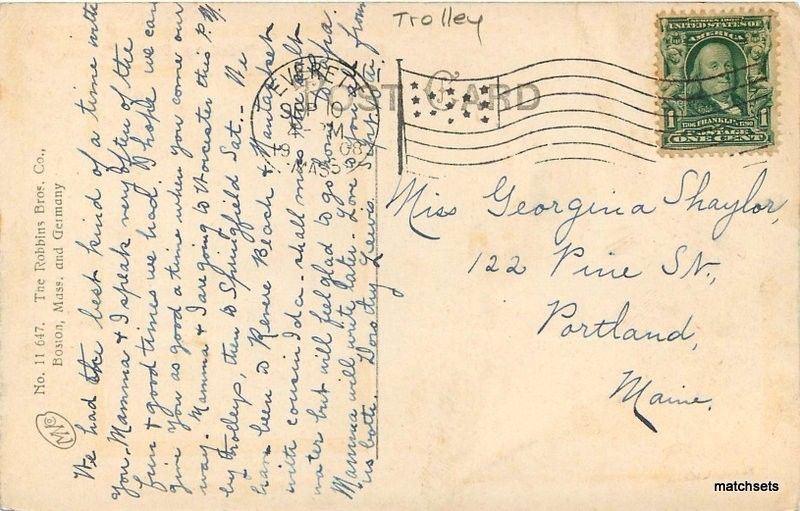 Trolley
POST CARD
EVERETT
SEP 10
M
1908
MASS.
SERIES 1902
UNITED STATES OF AMERICA
1706 FRANKLIN 1790
1 POSTAGE 1
ONE CENT
Miss Georgina Shaylor,
122 Pine St.,
Portland,
Maine.
We had the best kind of a time with
you. Mamma & I speak very often of the
fun & good times we had. I hope we can
give you as good a time when you come our
way. Mamma & I are going to Worcester this P.M.
by trolleys, then to Springfield Sat. - We
have been to Revere Beach & Nantasket
with cousin Ida - shall miss the salt
water but will feel glad to go home to papa.
Mamma will write later - Love to you all from
us both. Dorothy Lewis.
No. 11 647. The Robbins Bros. Co.,
Boston, Mass. and Germany
matchsets